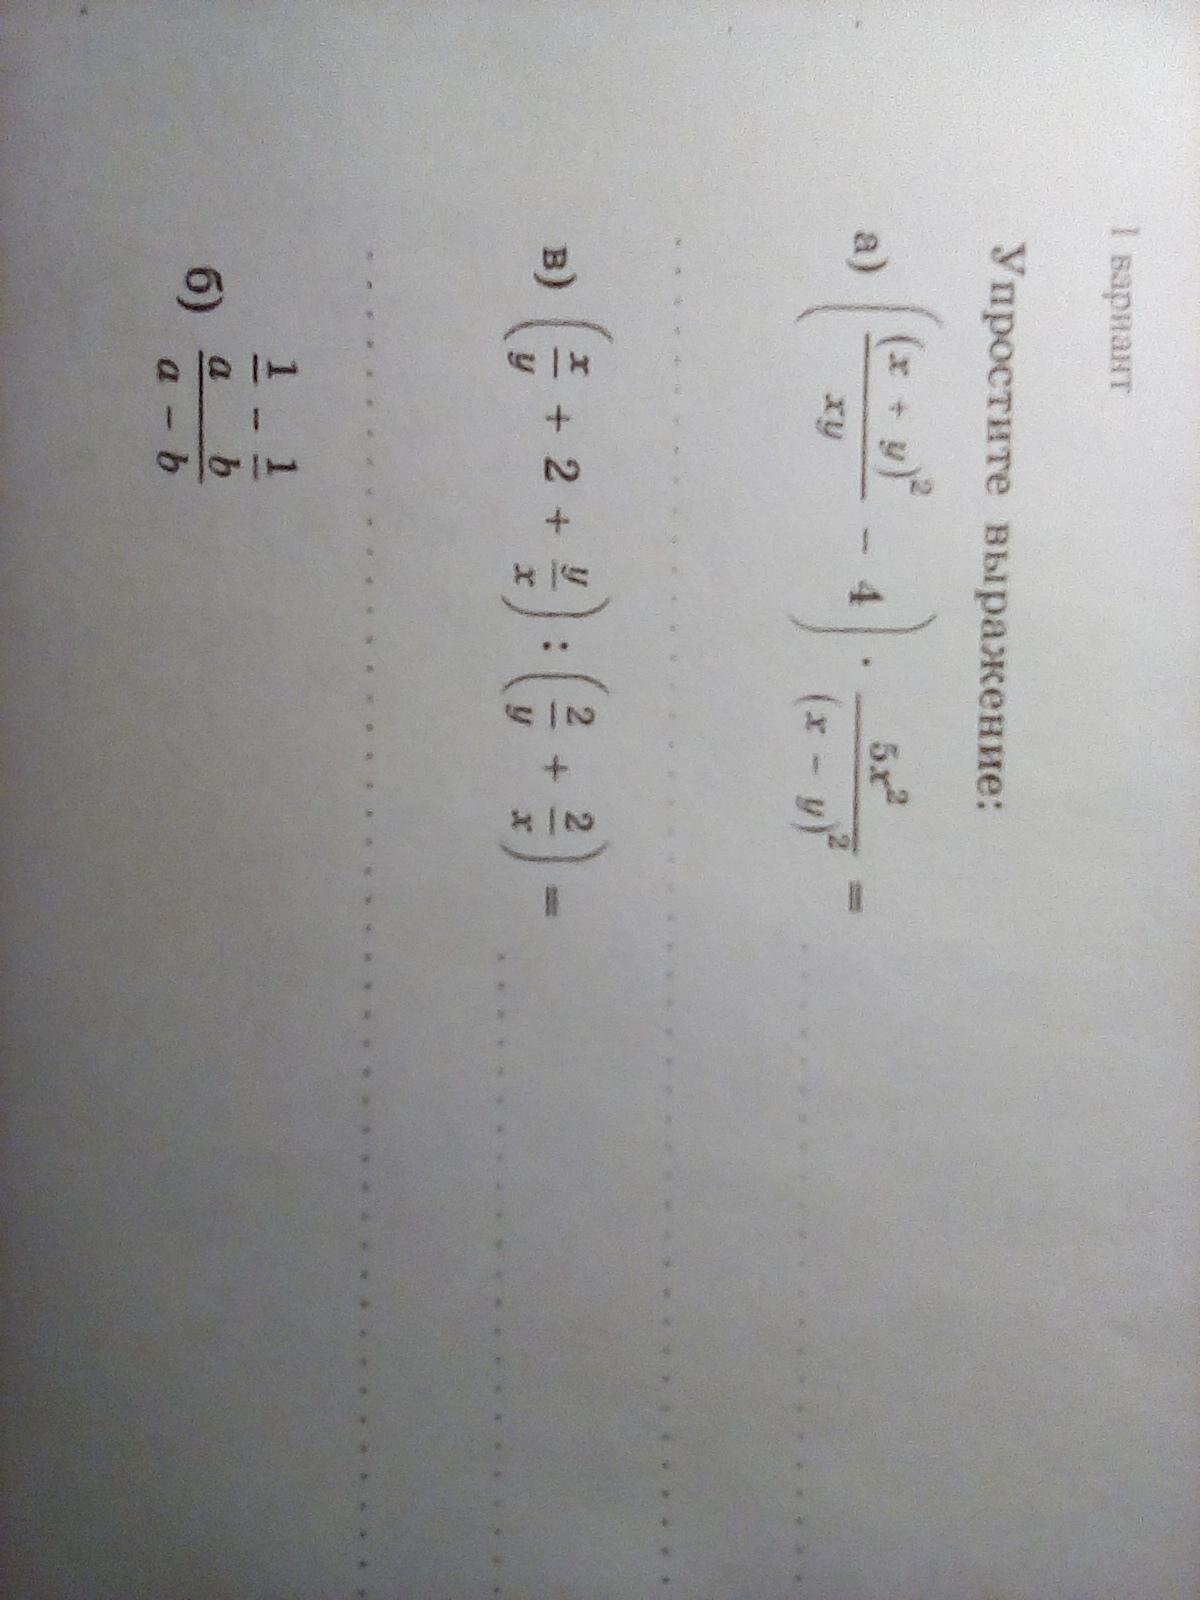 I вариант
Упростите выражение:
а) ((x + y)²/xy − 4) · 5x²/(x − y)² =
в) (x/y + 2 + y/x) : (2/y + 2/x) =
б) (1/a − 1/b)/(a − b)